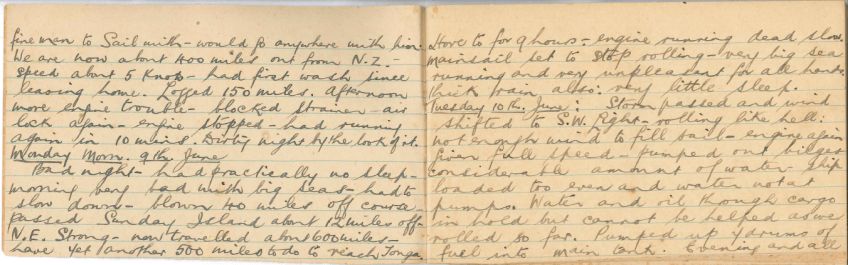 fine man to Sail with - would go anywhere with him.
We are now about 400 miles out from N.Z. -
speed about 5 Knots - had first wash since
leaving home. Logged 150 miles. Afternoon
more engine trouble - blocked strainer - air
lock again - engine stopped - had running
again in 10 mins. Dirty night by the look of it.
Monday Morn. 9th June
Bad night - had practically no sleep -
morning very bad with big seas - had to
slow down - blown 40 miles off course
passed Sunday Island about 12 miles off -
N.E. Strong - now travelled about 600 miles -
have yet another 500 miles to do to reach Tonga
Hove to for 9 hours - engine running dead slow.
mainsail set to stop rolling - very big sea
running and very unpleasant for all hands
thick rain also: very little sleep.
Tuesday 10th. June: Storm passed and wind
shifted to S.W. light - rolling like hell:
not enough wind to fill sail - engine again
given full speed - pumped out bilges
considerable amount of water - ship
loaded too even and water not at
pumps. Water and oil through cargo
in hold but cannot be helped as we
rolled so far. Pumped up 4 drums of
fuel into main tank. Evening and all